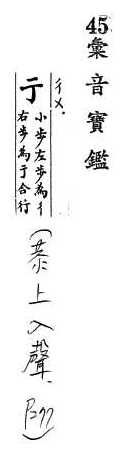 45彙音寶鑑
ㄔㄨˋ
亍
小步左步為彳
右步為亍合行
(恭上入聲、P277)